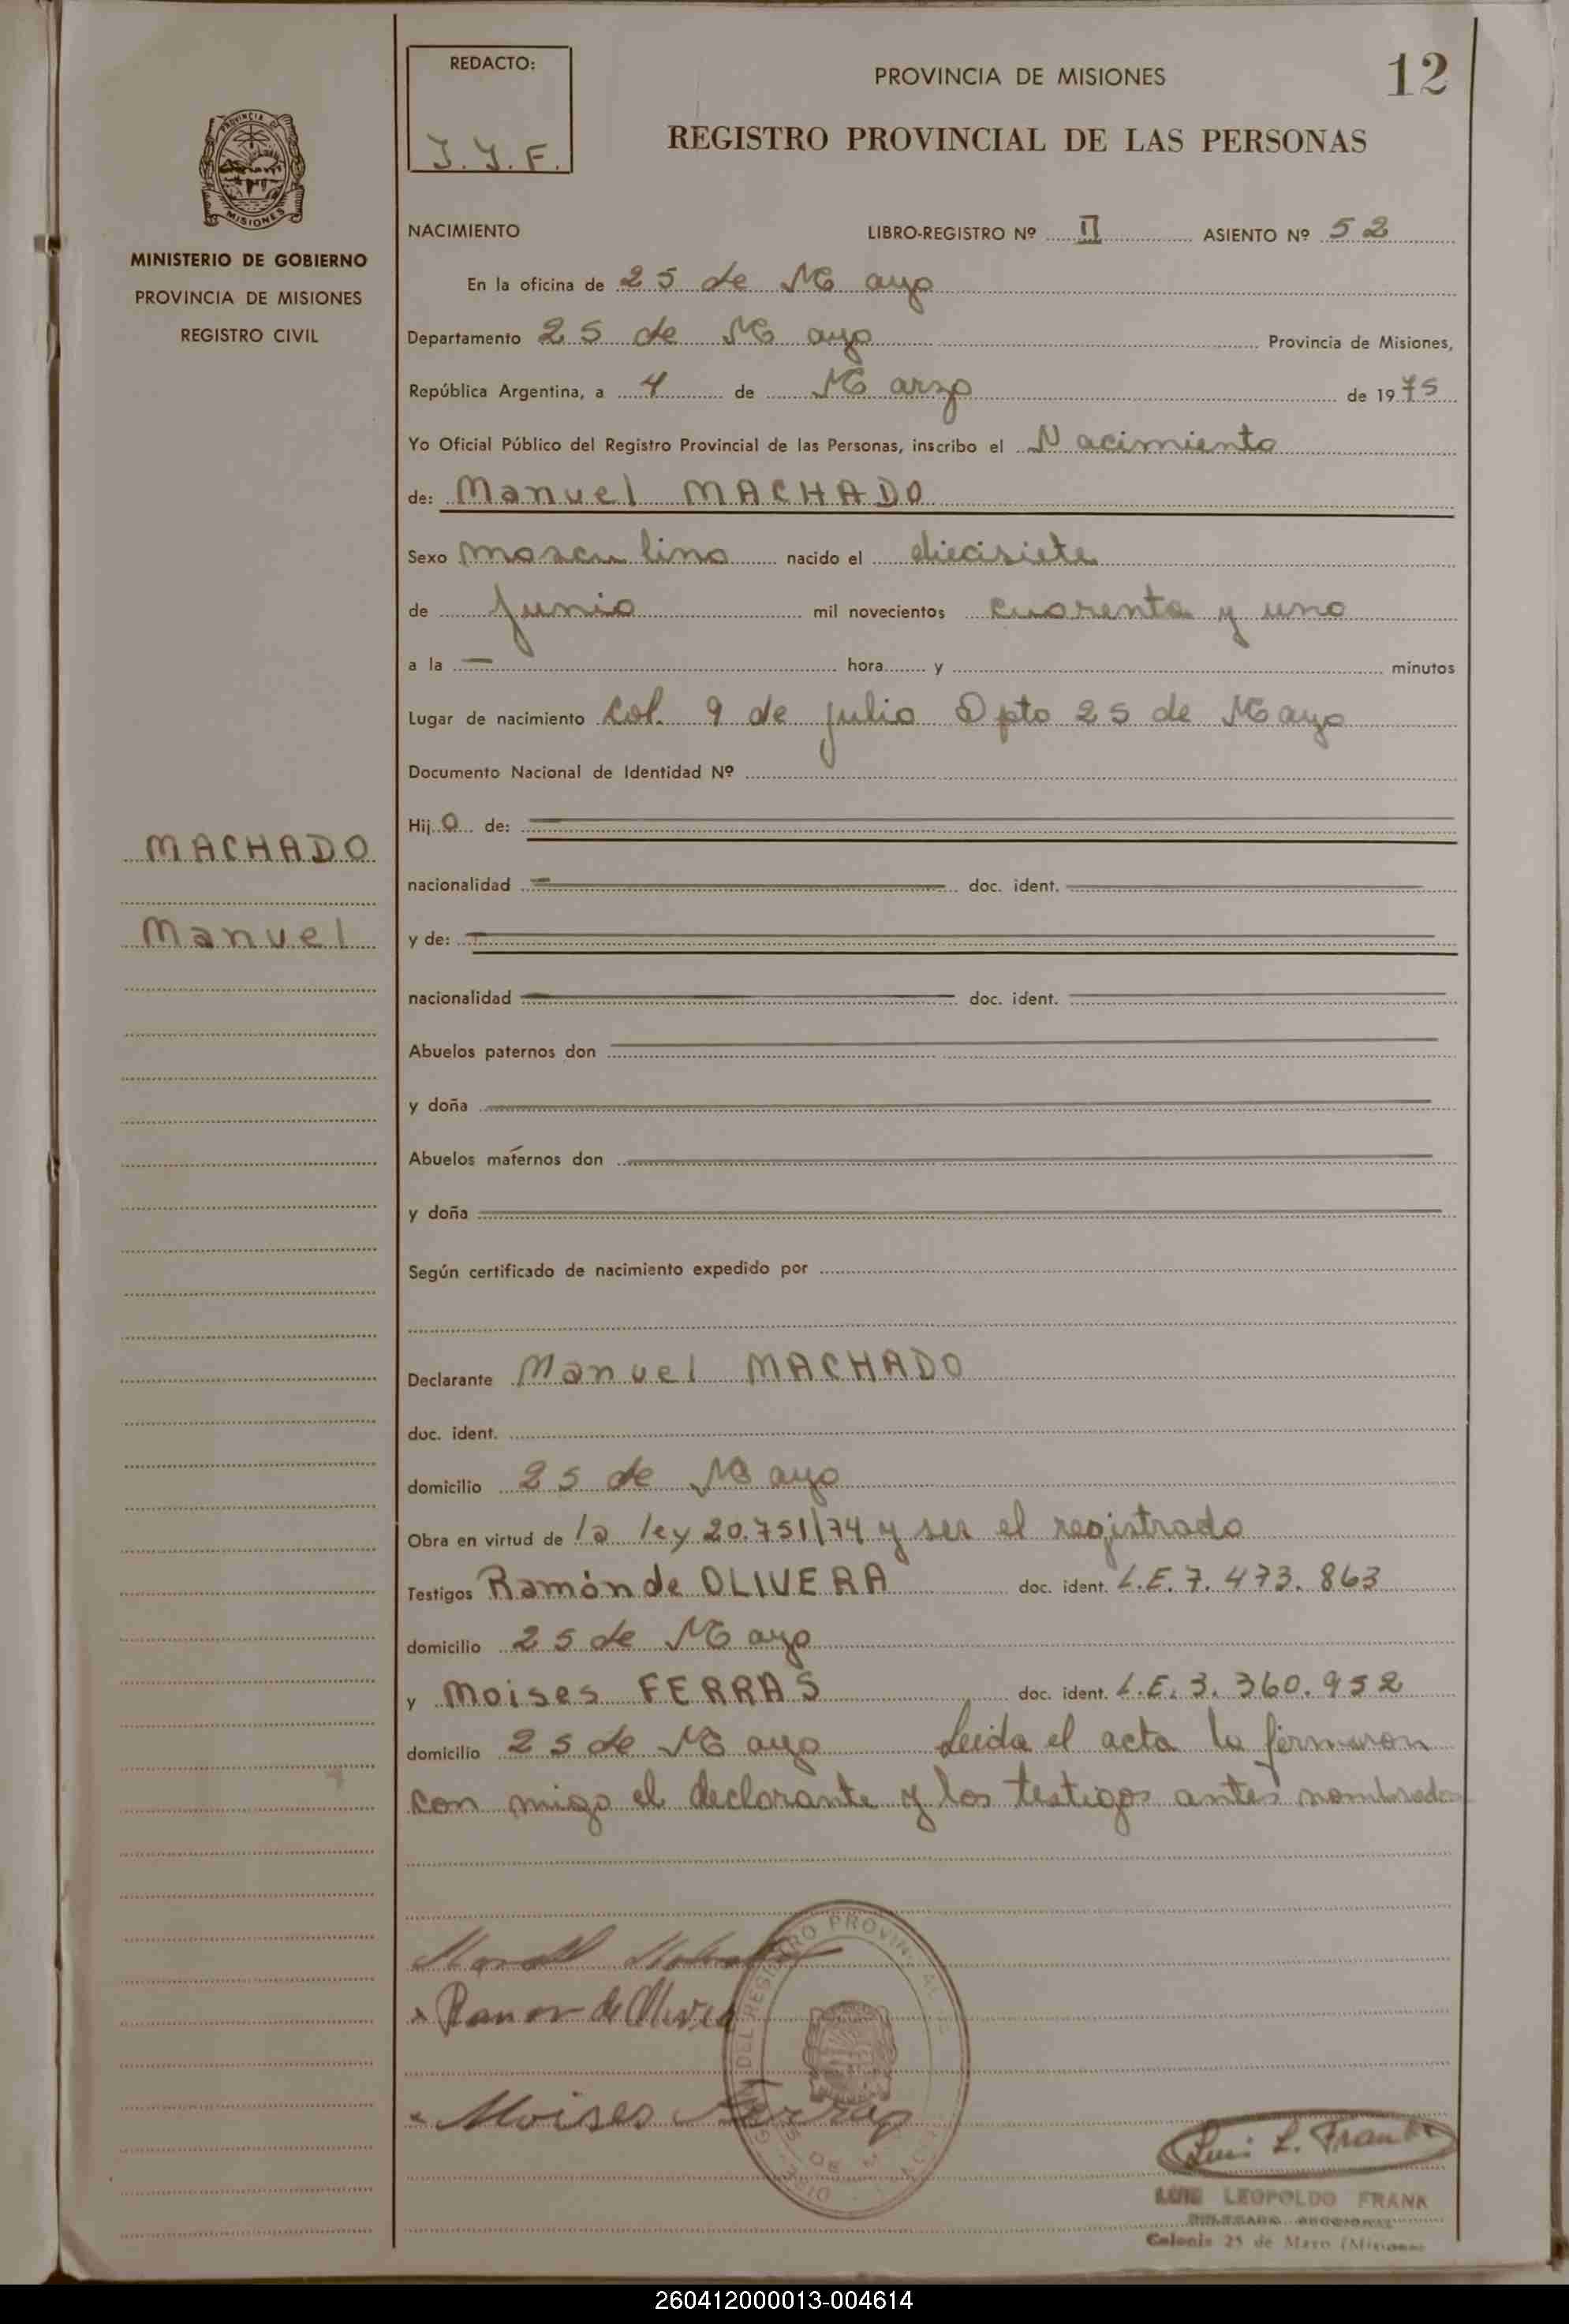 REDACTO:
J.J.F.
PROVINCIA DE MISIONES
12
REGISTRO PROVINCIAL DE LAS PERSONAS
PROVINCIA DE
MISIONES
MINISTERIO DE GOBIERNO
PROVINCIA DE MISIONES
REGISTRO CIVIL
NACIMIENTO LIBRO-REGISTRO Nº II ASIENTO Nº 52
En la oficina de 25 de Mayo
Departamento 25 de Mayo Provincia de Misiones,
República Argentina, a 4 de Marzo de 1975
Yo Oficial Público del Registro Provincial de las Personas, inscribo el Nacimiento
de: Manuel MACHADO
Sexo masculino nacido el diecisiete
de Junio mil novecientos cuarenta y uno
a la — hora y minutos
Lugar de nacimiento Col. 9 de julio Dpto 25 de Mayo
Documento Nacional de Identidad Nº
Hijo de:
MACHADO
nacionalidad doc. ident.
Manuel
y de:
nacionalidad doc. ident.
Abuelos paternos don
y doña
Abuelos maternos don
y doña
Según certificado de nacimiento expedido por
Declarante Manuel MACHADO
doc. ident.
domicilio 25 de Mayo
Obra en virtud de la ley 20.751/74 y ser el registrado
Testigos Ramón de OLIVERA doc. ident. L.E. 7.473.863
domicilio 25 de Mayo
y Moises FERRAS doc. ident. L.E. 3.360.952
domicilio 25 de Mayo Leida el acta la firmaron
con migo el declarante y los testigos antes nombrados
Ramon de
Moises
Luis L. Frank
LUIS LEOPOLDO FRANK
DELEGADO SECCIONAL
Colonia 25 de Mayo (Misiones)
260412000013-004614